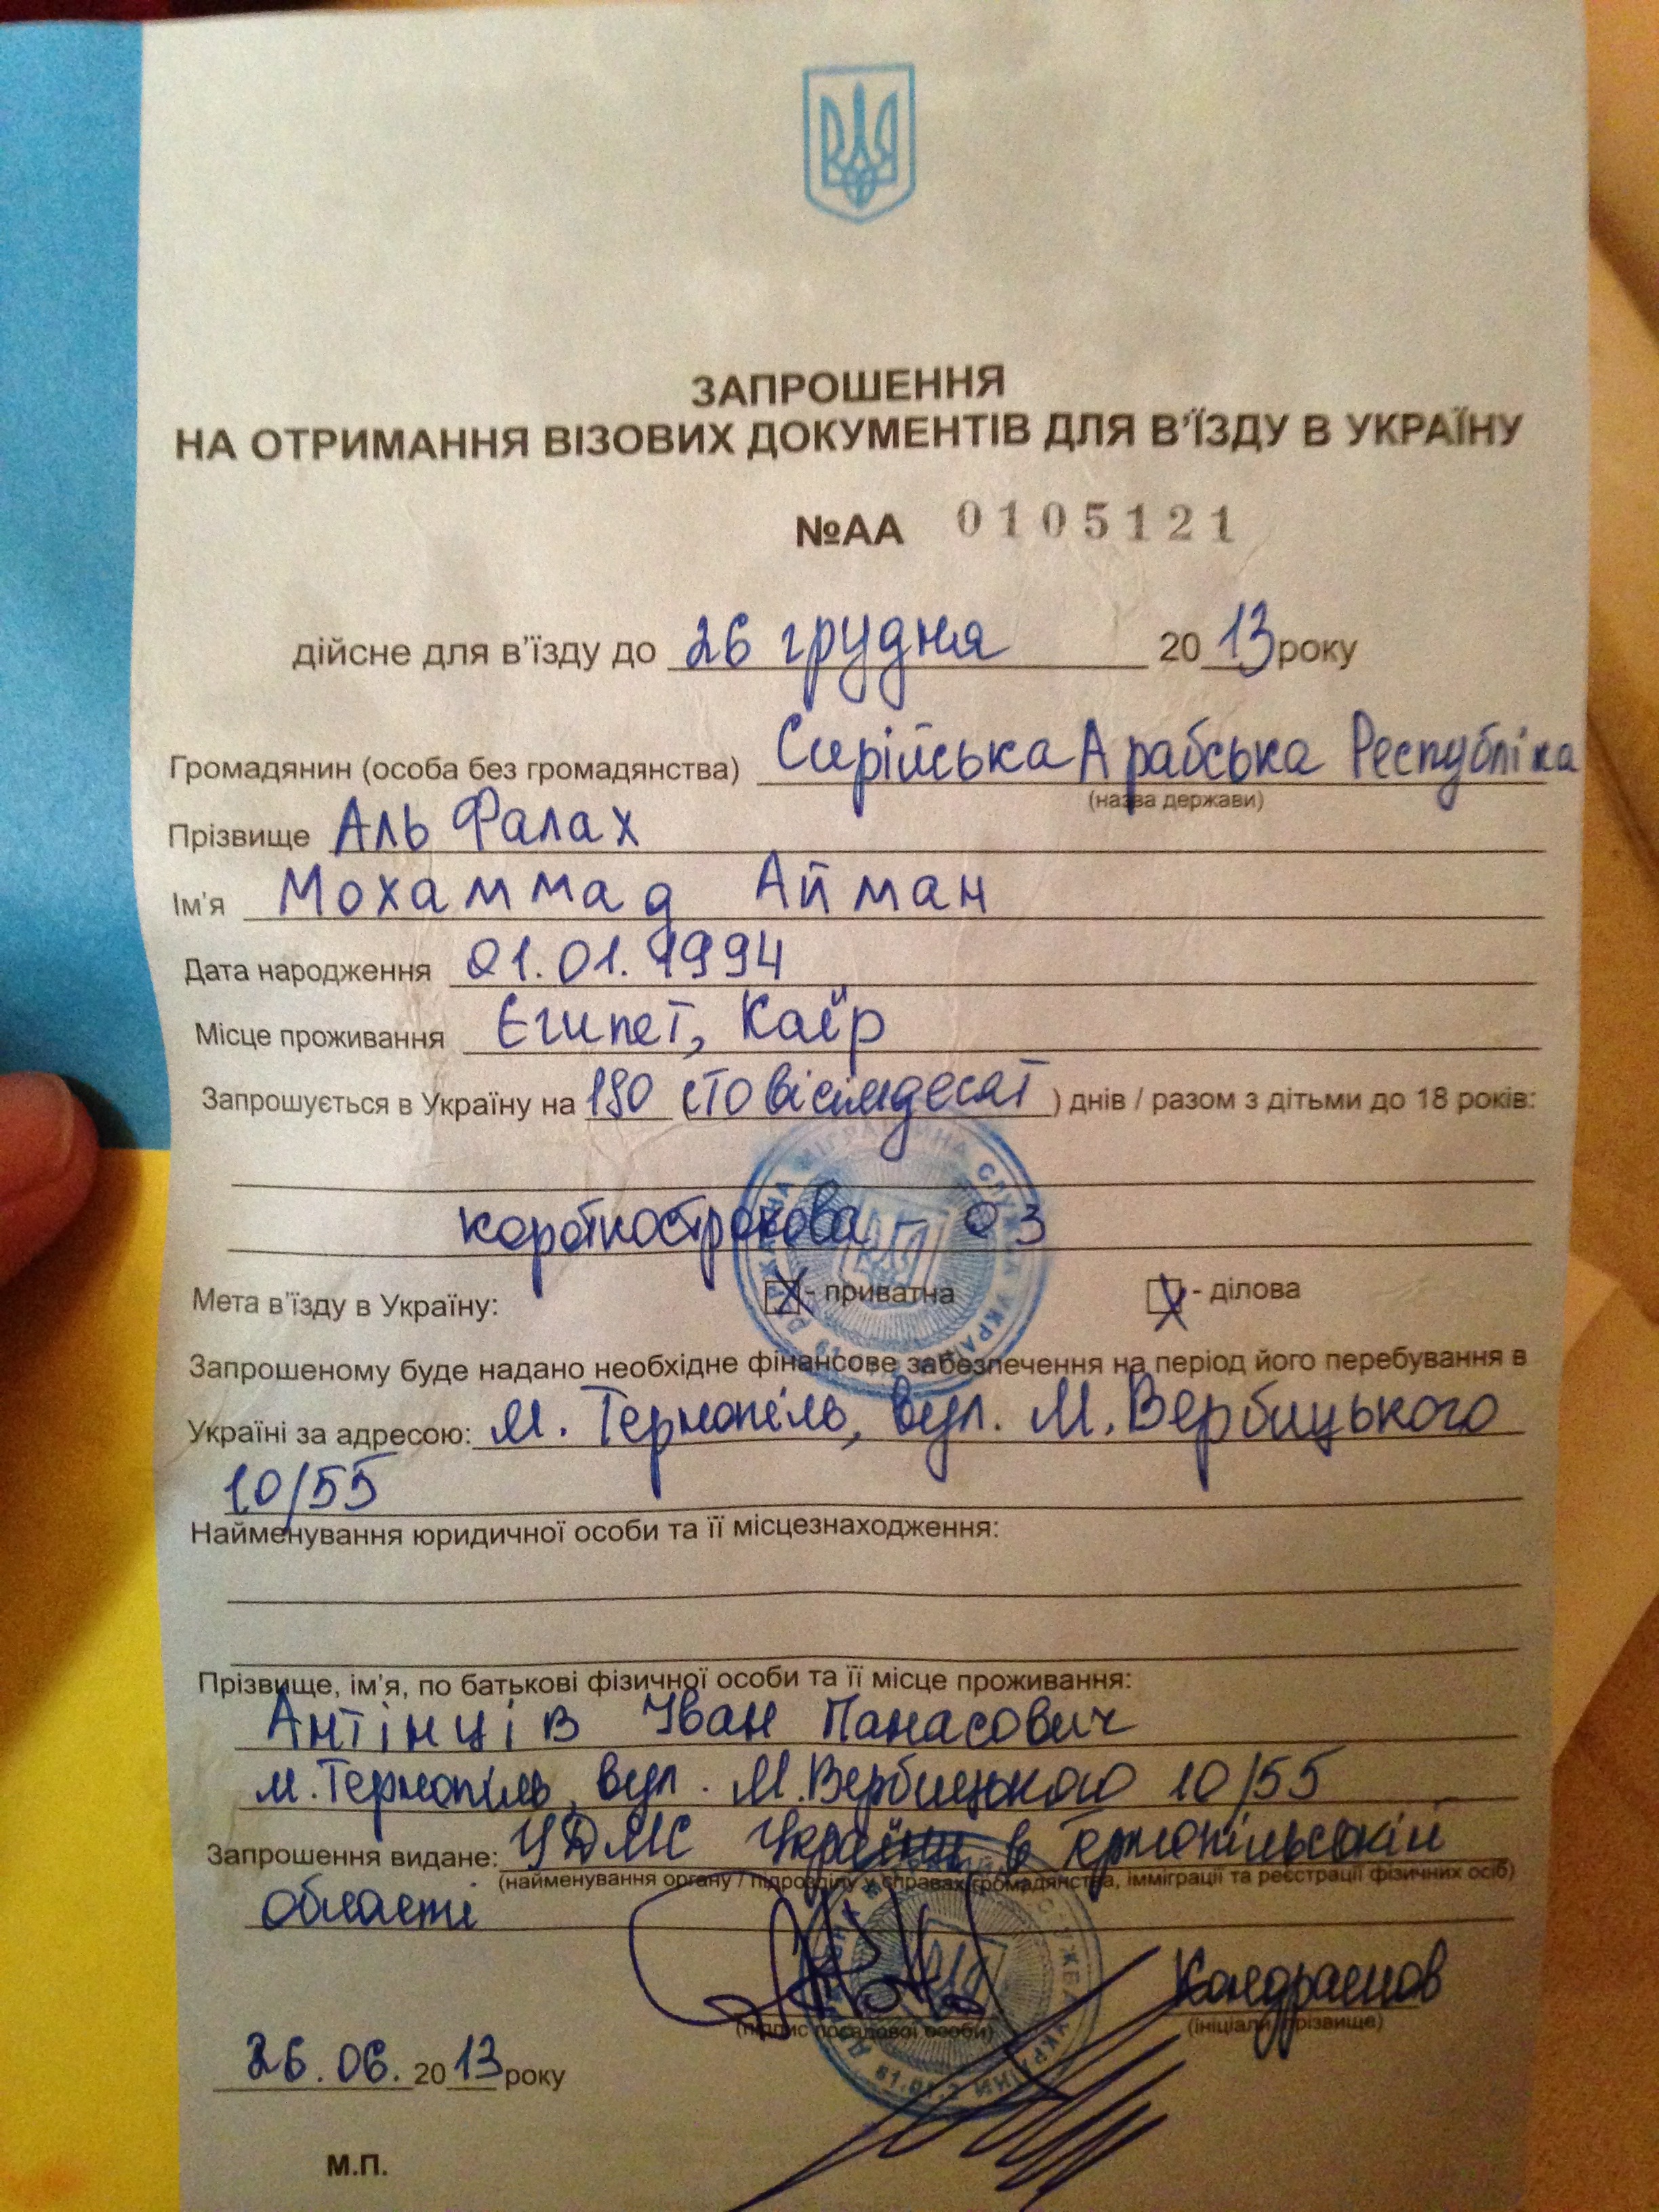 ЗАПРОШЕННЯ
НА ОТРИМАННЯ ВІЗОВИХ ДОКУМЕНТІВ ДЛЯ В'ЇЗДУ В УКРАЇНУ
№АА 0105121
дійсне для в'їзду до 26 грудня 2013 року
Громадянин (особа без громадянства) Сирійська Арабська Республіка
(назва держави)
Прізвище Аль Фалах
Ім'я Мохаммад Айман
Дата народження 01.01.1994
Місце проживання Єгипет, Каїр
Запрошується в Україну на 180 (сто вісімдесят) днів / разом з дітьми до 18 років:
короткострокова - 03
Мета в'їзду в Україну: - приватна - ділова
Запрошеному буде надано необхідне фінансове забезпечення на період його перебування в
Україні за адресою: м. Тернопіль, вул. М. Вербицького
10/55
Найменування юридичної особи та її місцезнаходження:
Прізвище, ім'я, по батькові фізичної особи та її місце проживання:
Антінців Іван Панасович
м. Тернопіль, вул. М. Вербицького 10/55
Запрошення видане: УДМС України в Тернопільській
(найменування органу / підрозділу у справах громадянства, імміграції та реєстрації фізичних осіб)
області
Кондрашов
(підпис посадової особи) (ініціали, прізвище)
26.06.2013 року
М.П.